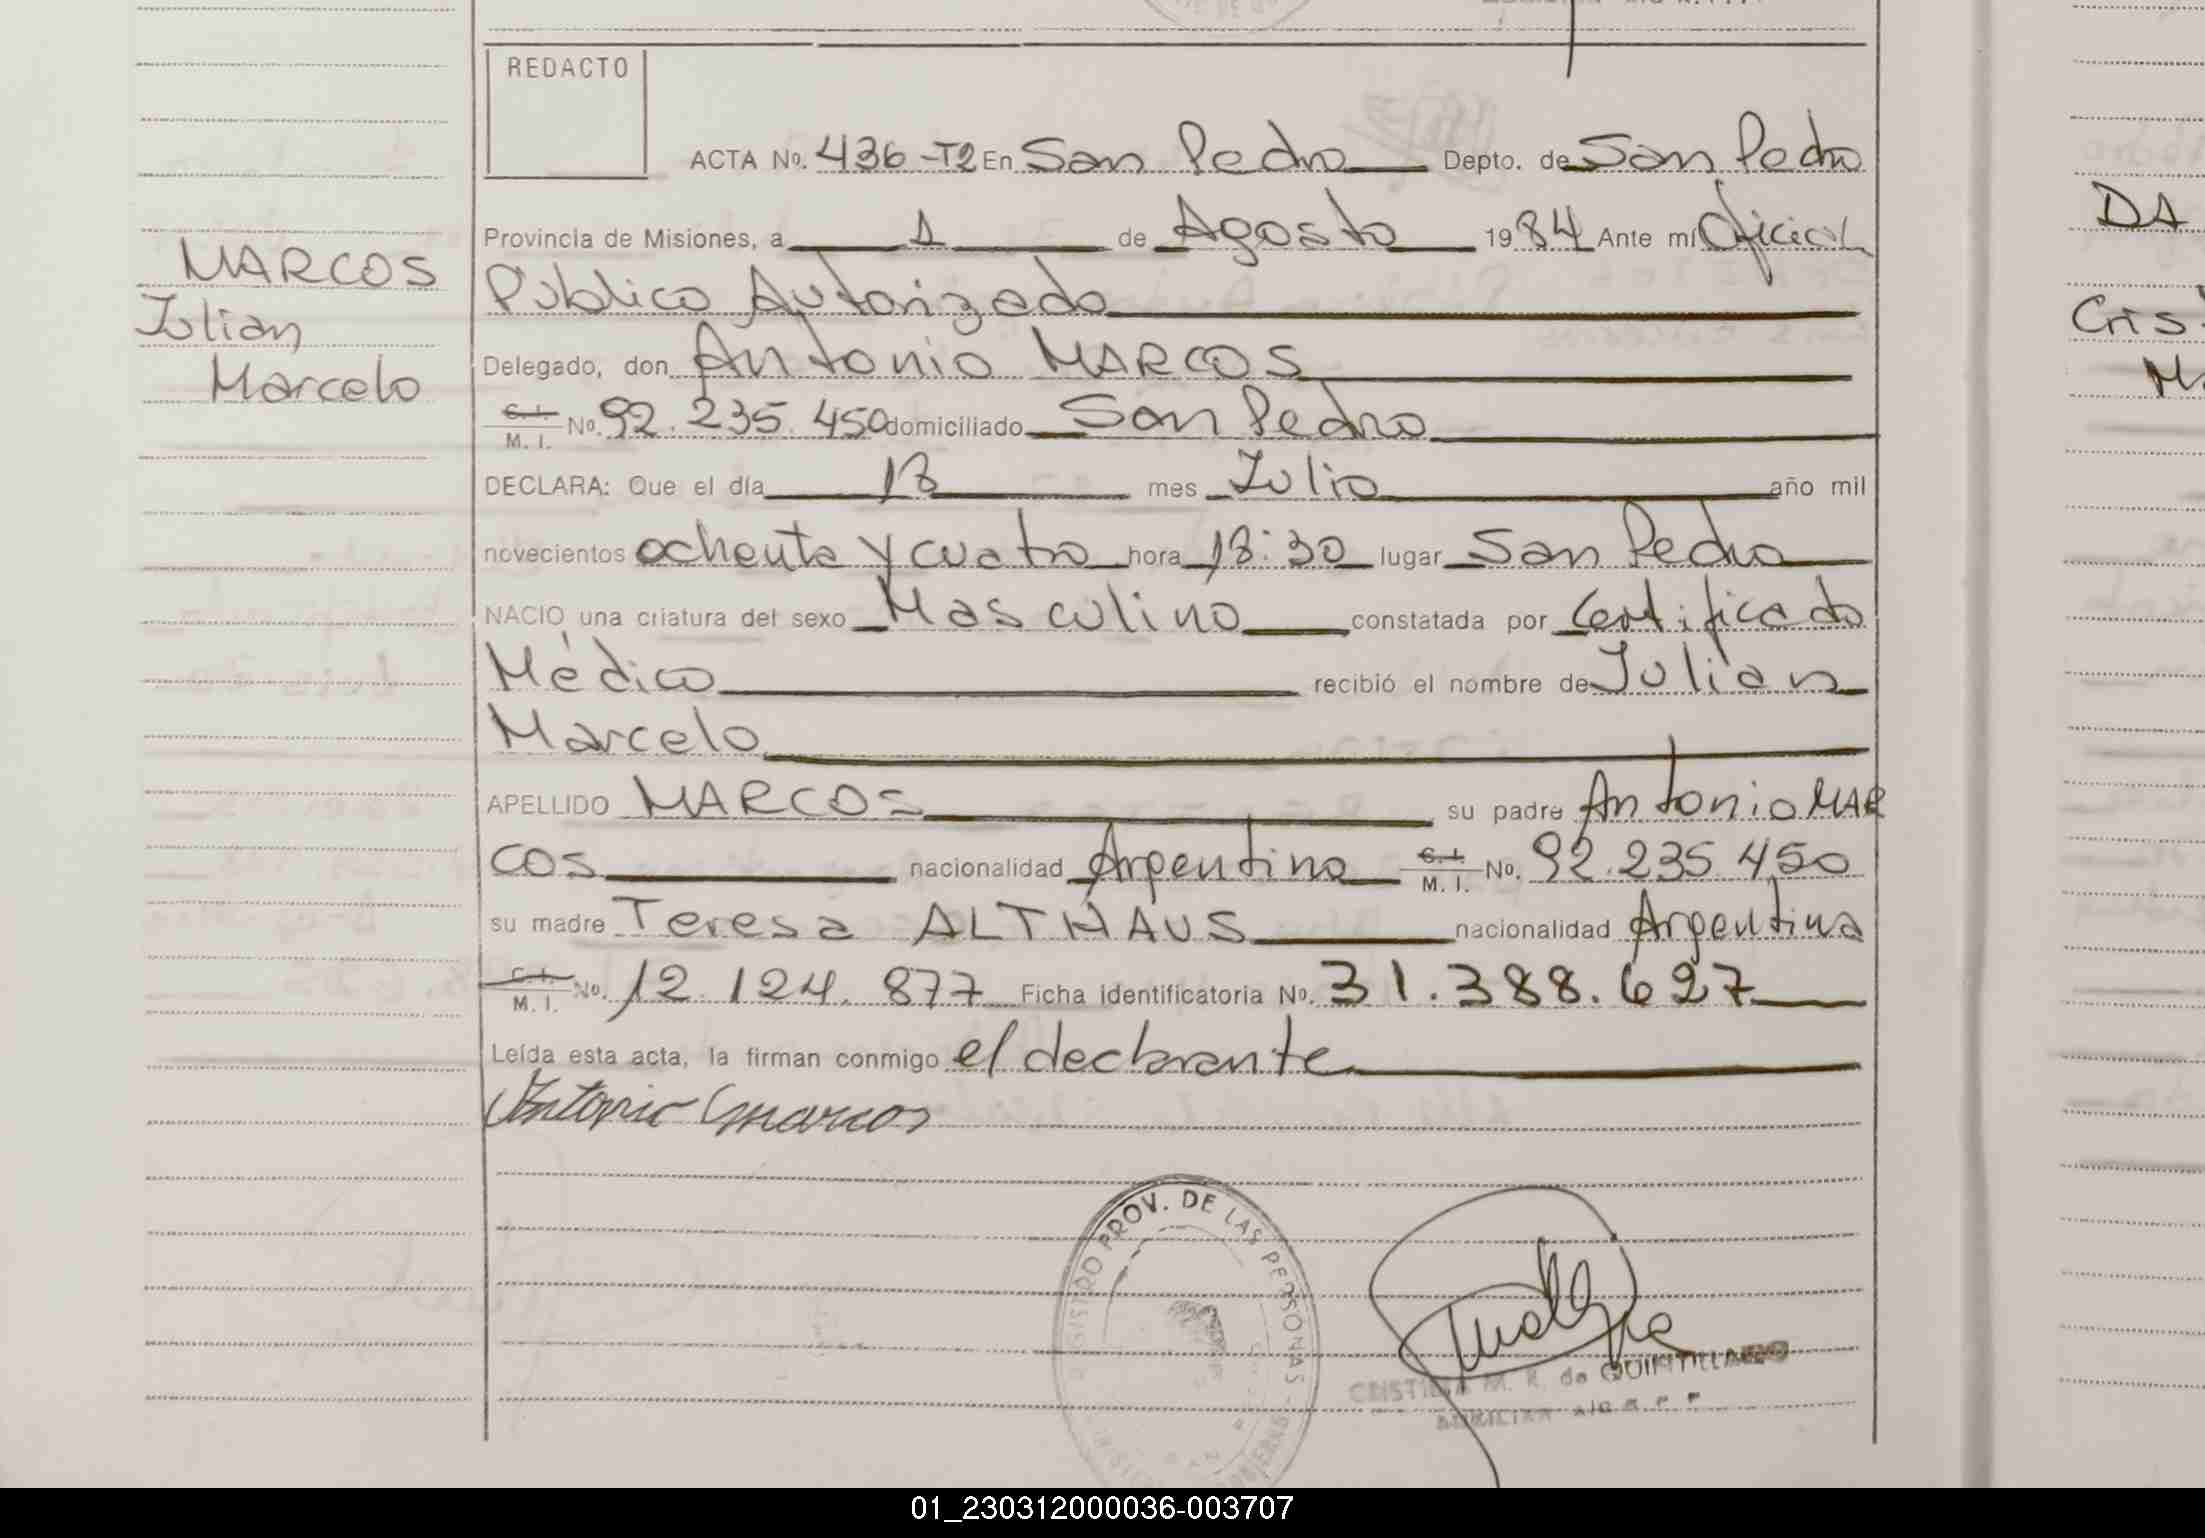 REDACTO
ACTA Nº. 436-T2 En San Pedro Depto. de San Pedro
Provincia de Misiones, a 1 de Agosto 1984 Ante mí Oficial
Público Autorizado
Delegado, don Antonio MARCOS
C. I. M. I. Nº. 92.235.450 domiciliado San Pedro
DECLARA: Que el día 18 mes Julio año mil
novecientos ochenta y cuatro hora 18:30 lugar San Pedro
NACIO una criatura del sexo Masculino constatada por Certificado
Médico recibió el nombre de Julián
Marcelo
APELLIDO MARCOS su padre Antonio MAR
COS nacionalidad Argentino C. I. M. I. Nº. 92.235.450
su madre Teresa ALTHAUS nacionalidad Argentina
C. I. M. I. Nº. 12.124.877 Ficha identificatoria Nº. 31.388.627
Leída esta acta, la firman conmigo el declarante
Antonio Marcos
MARCOS
Julian
Marcelo
REGISTRO PROV. DE LAS PERSONAS
CRISTINA M. R. de QUINTILLANO
AUXILIAR
DA
Cris
01_230312000036-003707